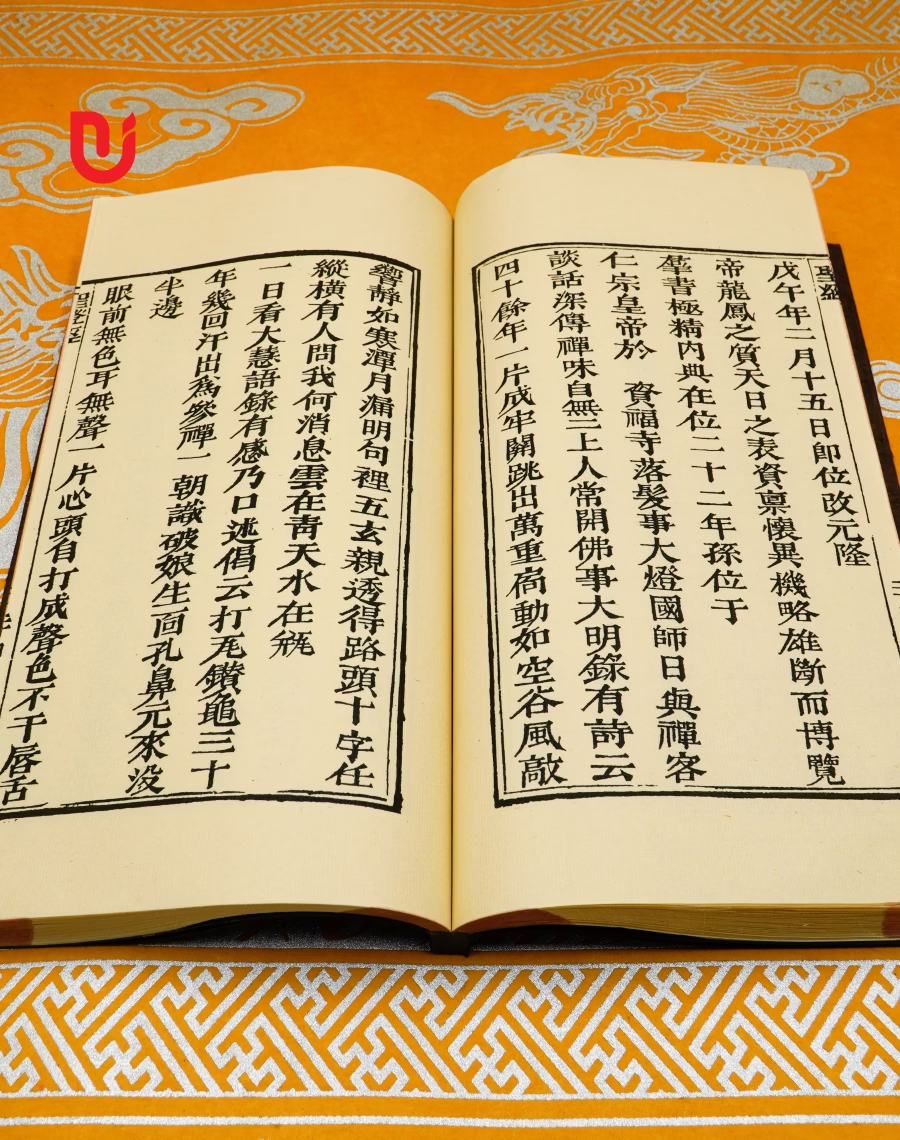 戊午年二月十五日即位改元隆
帝龍鳳之質天日之表資禀懷異機略雄斷而博覽
羣書極精內典在位二十二年孫位于
仁宗皇帝於 資福寺落髮事大燈國師日與禪客
談話深傳禪味自無三上人常開佛事大明錄有詩云
四十餘年一片成牢關跳出萬重崗動如空谷風敲
響靜如寒潭月漏明句裡五玄親透得路頭十字任
縱橫有人問我何消息雲在青天水在瓶
一日看大慧語錄有感乃口述偈云打瓦鑽龜三十
年幾回汗出為參禪一朝識破娘生面孔鼻元來没
半邊
眼前無色耳無聲一片心頭自打成聲色不干唇舌